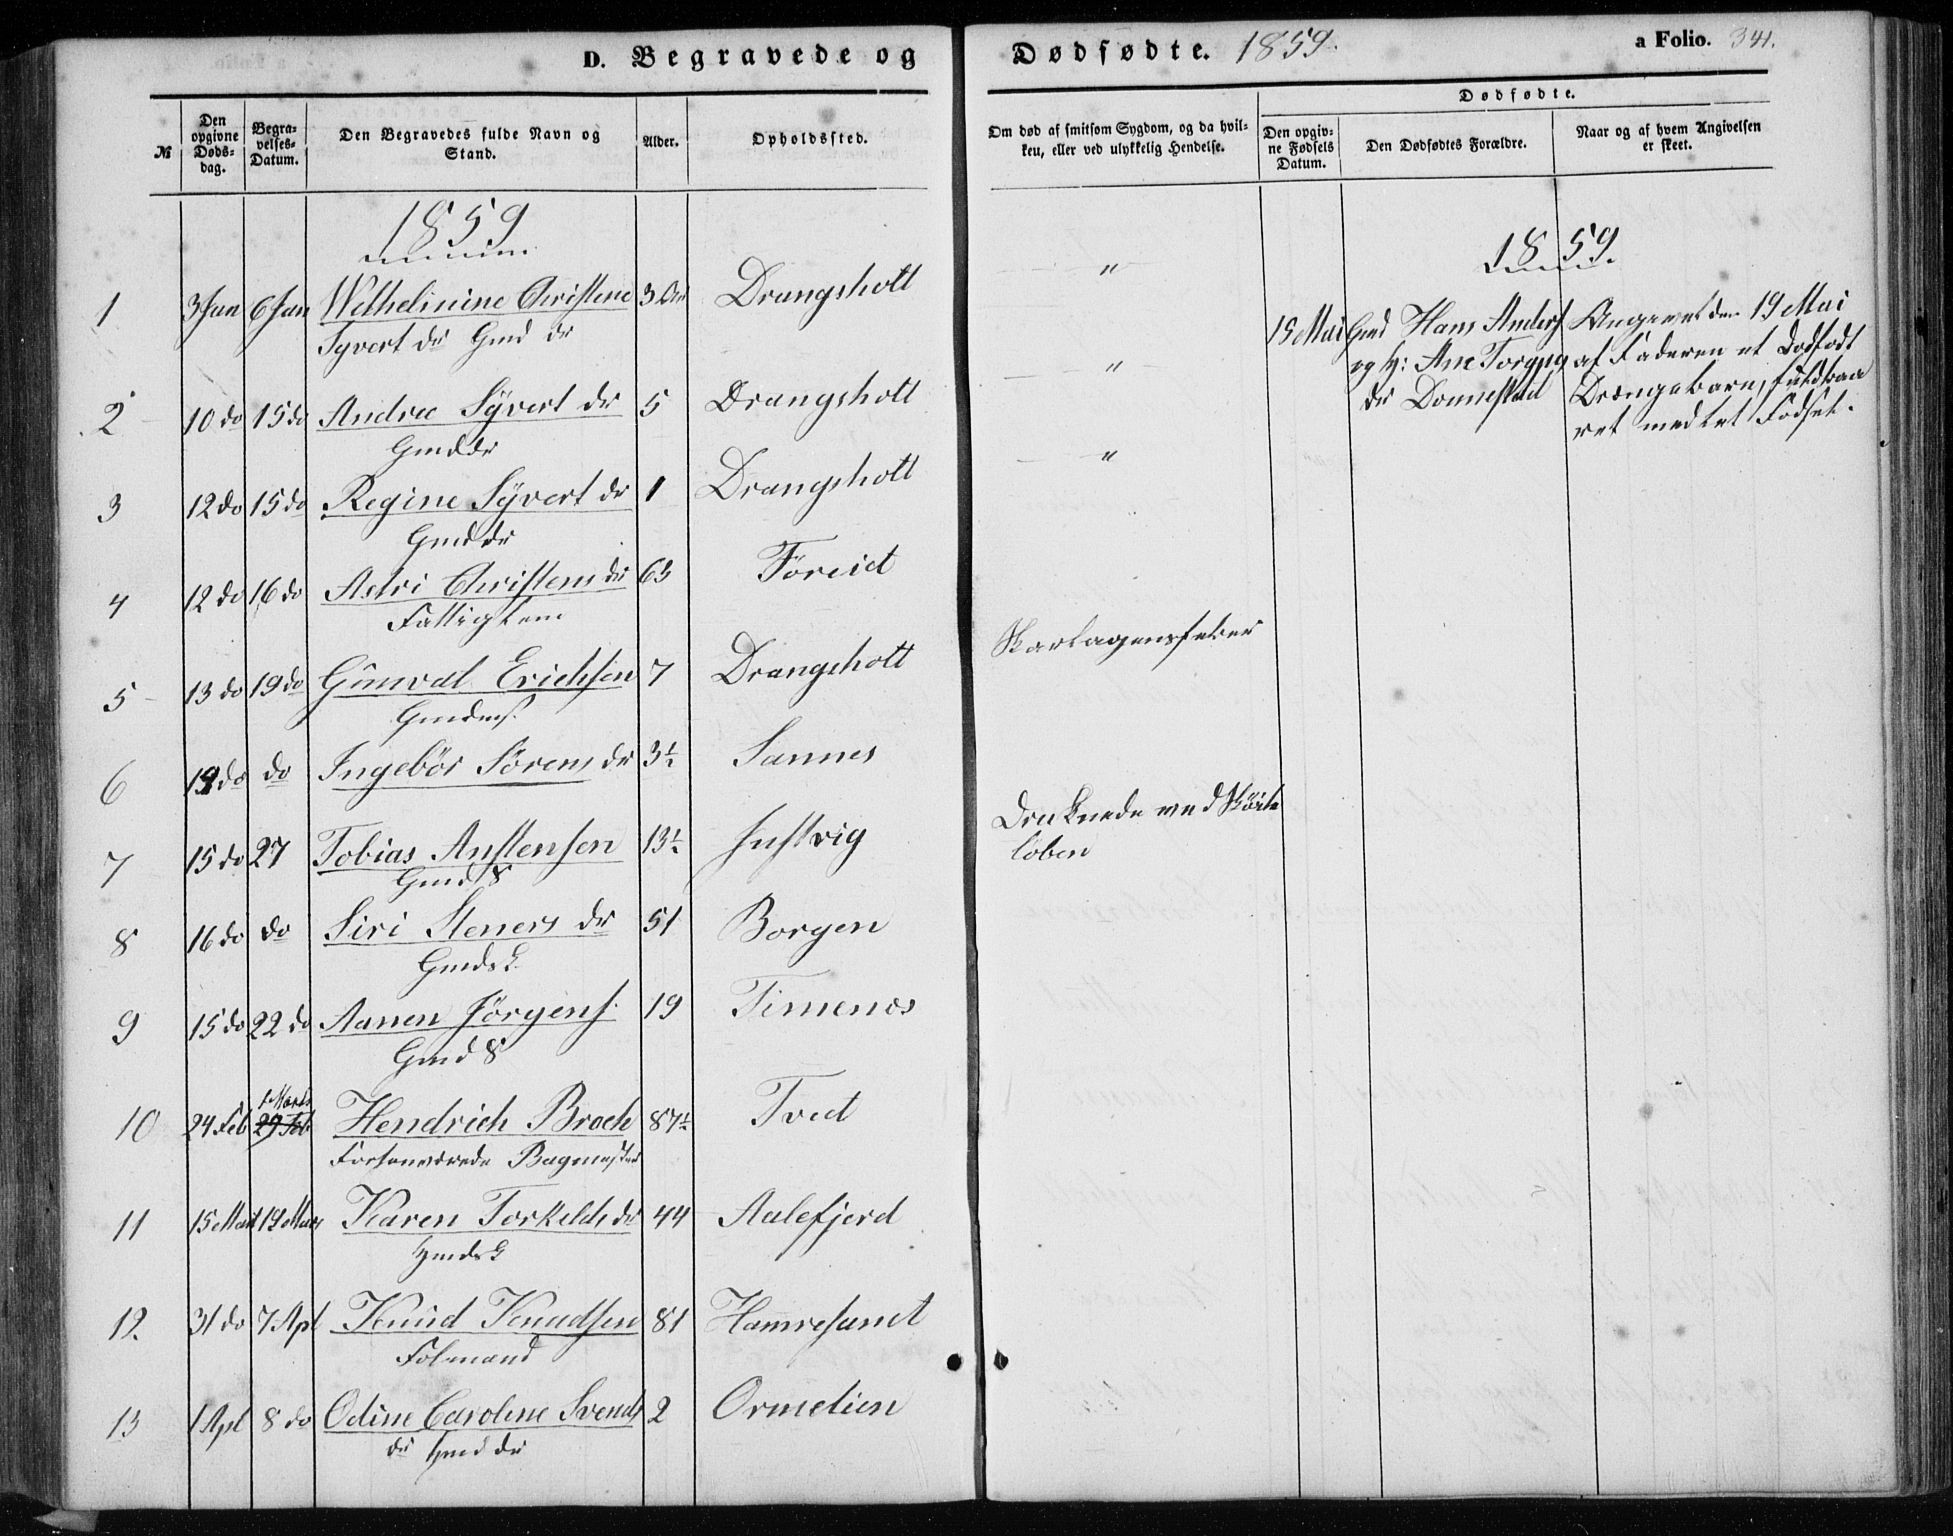 D. Begravede og Dødfødte. 1859. a Folio. 341.
№
Den opgivne Døds-dag.
Begra-velses-Datum.
Den Begravedes fulde Navn og Stand.
Alder.
Opholdssted.
Om død af smitsom Sygdom, og da hvil-ken, eller ved ulykkelig Hendelse.
Dødfødte.
Den opgiv-ne Fødsels Datum.
Den Dødfødtes Forældre.
Naar og af hvem Angivelsen er skeet.
1859
1 3 Jan 6 Jan Wilhelmine Christene 3 Aar Drangsholt "
Syvert dr Gmd dr
2 10 do 15 do Andrea Syvert dr 5 Drangsholt "
Gmd dr
3 12 do 15 do Regine Syvert dr 1 Drangsholt "
Gmd dr
4 12 do 16 do Astri Christens dr 63 Föreid
Fattiglem
5 13 do 19 do Gunval Erichsen 7 Drangsholt Skarlagensfeber
Gmds.
6 do do Ingebör Sörens dr 3½ Sannes
7 15 do 27 Tobias Anstensen 13½ Justvig Druknede ved Sköite
Gmd S löben
8 16 do do Siri Steners dr 51 Borgen
Gmds k
9 15 do 22 do Aanen Jörgens. 19 Timenes
Gmd S
1 Marts
10 24 Feb 29 Feb Hendrich Broch 87½ Tved
Forhenværende Bagmester
11 15 Mart 19 Mars Karen Torkelds dr 44 Aalefjerd
Hmds k
12. 31 do 7 Apl Knud Knudsen 81 Hamresand
Folmand
13 1 Apl 8 do Odine Caroline Svends 2 Ormelien
dr Hmd dr
1859
15 Mai Gmd Hans Anders Angivet den 19 Mai
og H: Ane Torgs af Faderen et Dødfødt
dr Donnestad Drengebarn, fuldbaa
ret med let Fødsel.